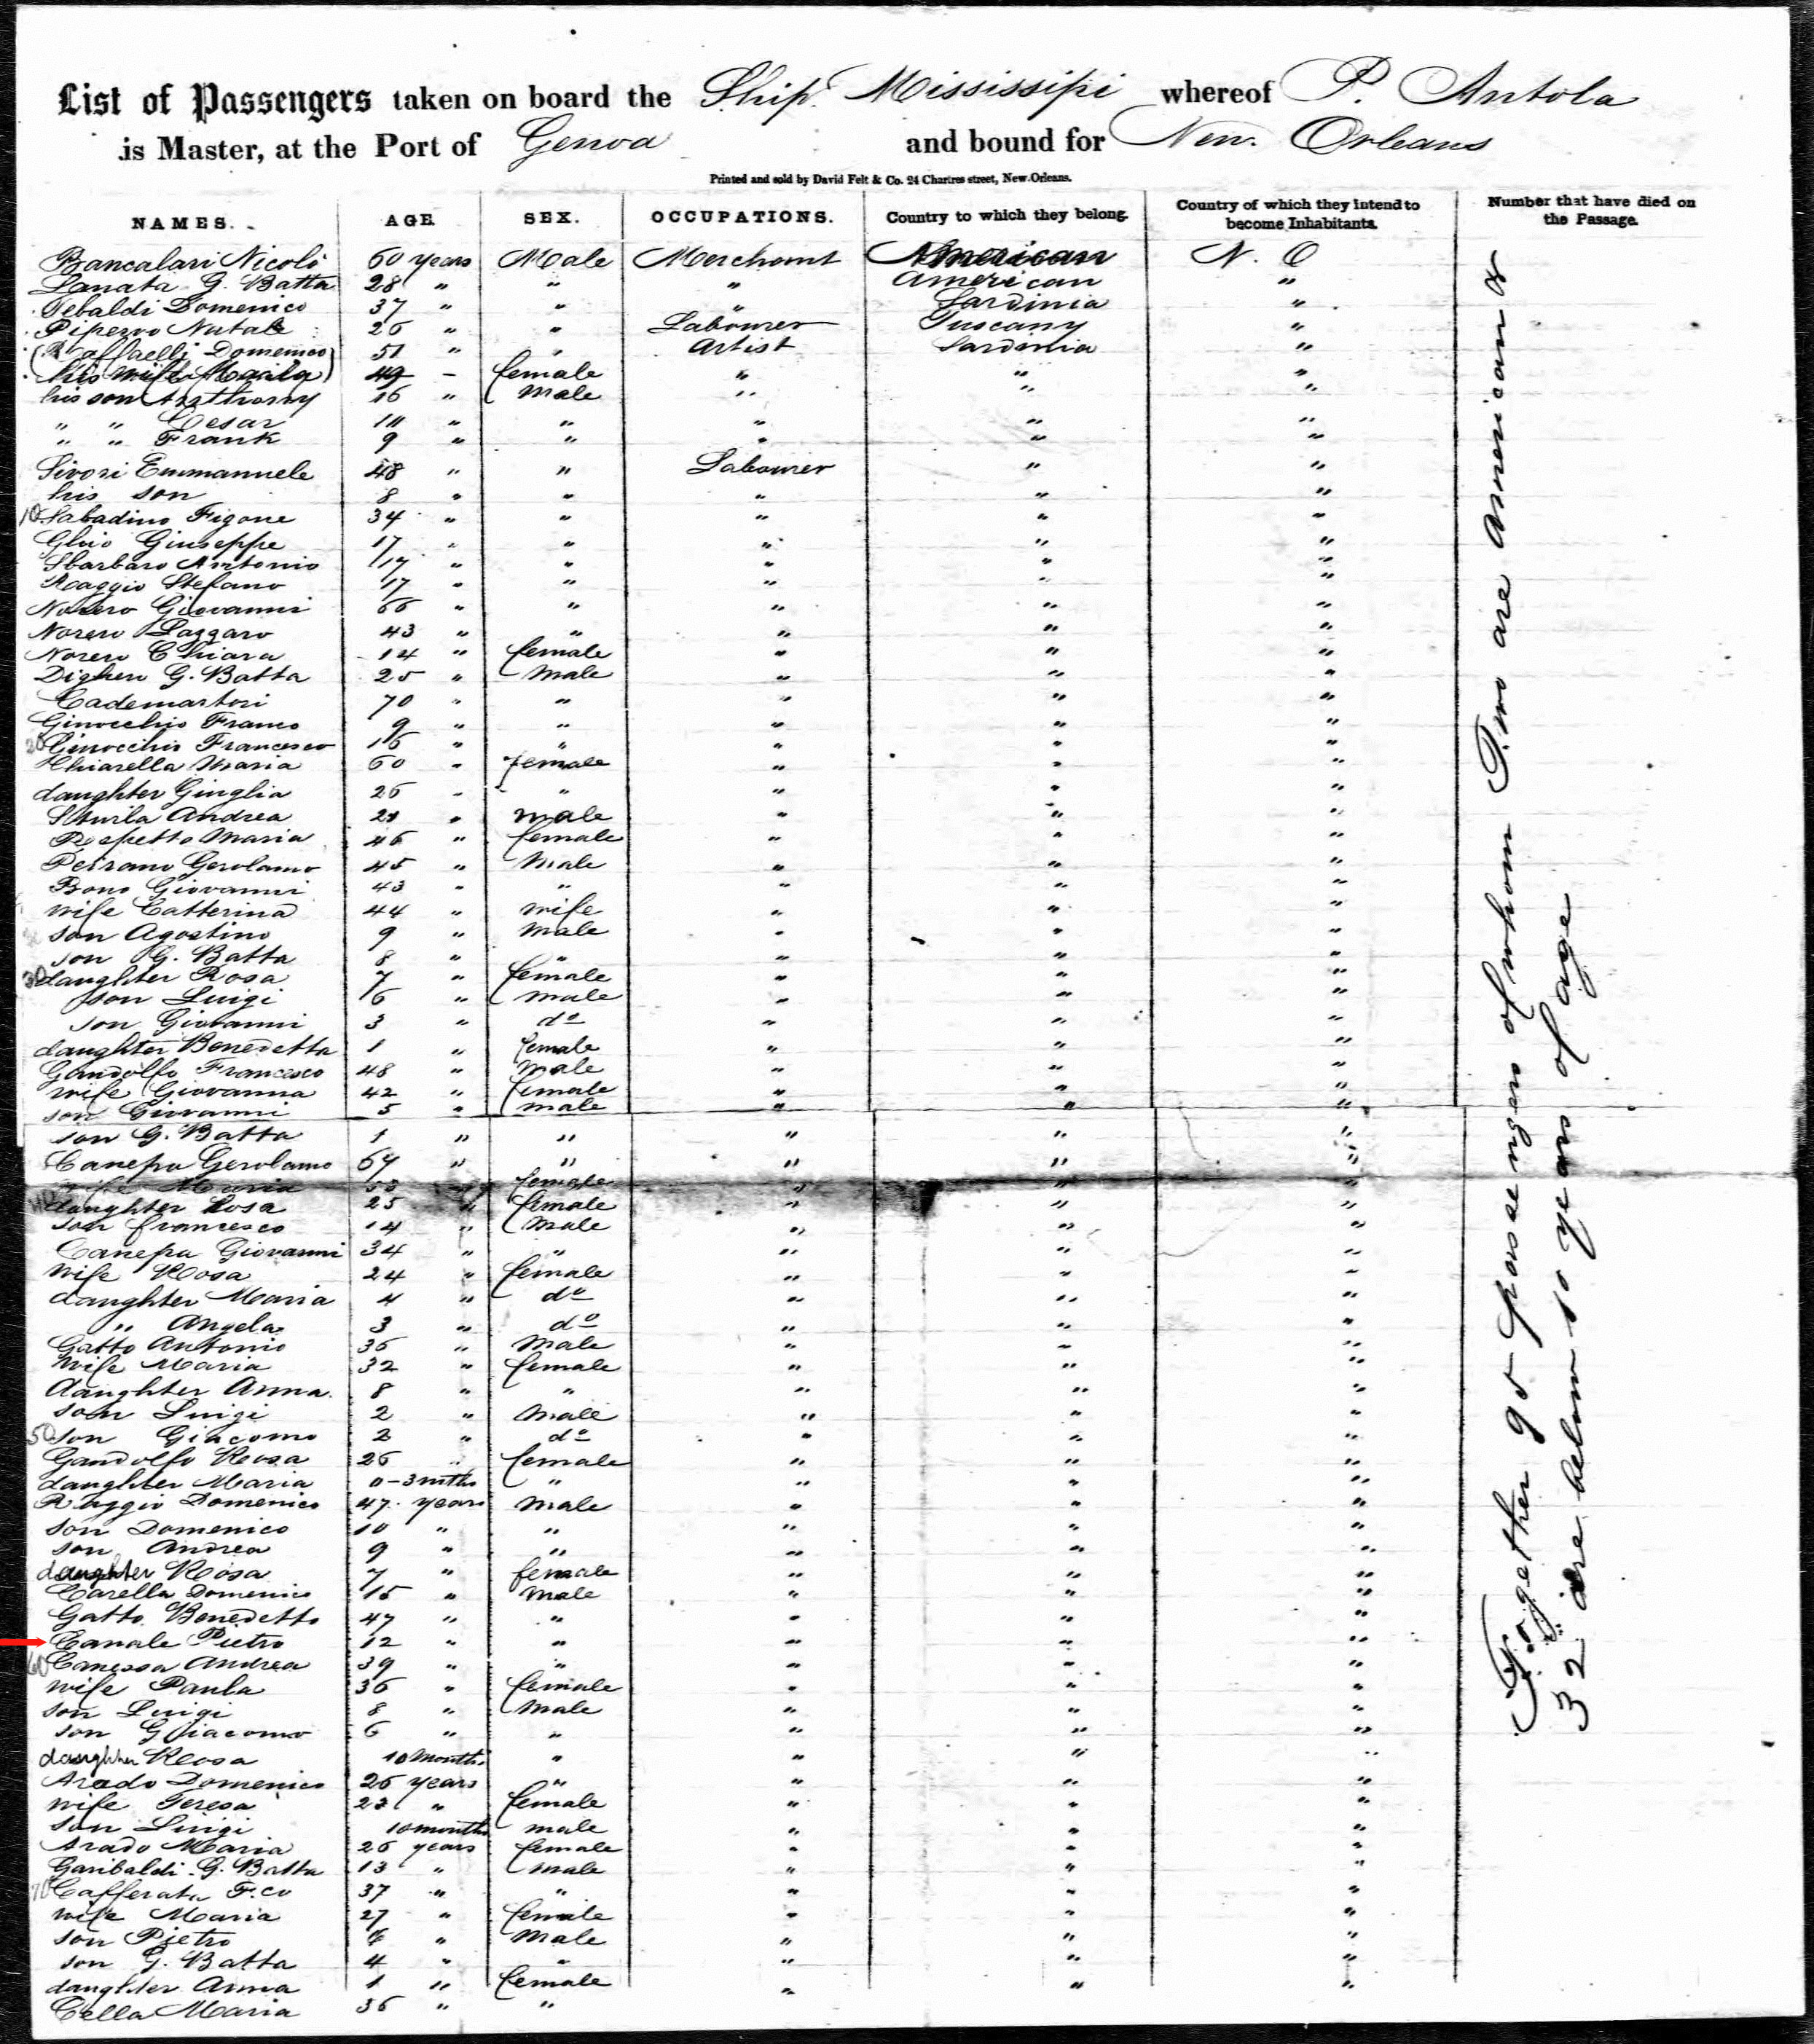 List of Passengers taken on board the Ship Mississipi whereof P. Antola
is Master, at the Port of Genoa and bound for New Orleans
Printed and sold by David Felt & Co. 24 Chartres street, New-Orleans.
NAMES. AGE SEX. OCCUPATIONS. Country to which they belong. Country of which they intend to become Inhabitants. Number that have died on the Passage.
Bancalari Nicolò 60 years Male Merchant American N. O
Lanata G. Batta 28 " " " American "
Tebaldi Domenico 37 " " " Sardinia "
Pipervo Natale 26 " " Labourer Tuscany "
Raffaelli Domenico 51 " " Artist Sardinia "
his wife Maria 49 - female " " "
his son Anthony 16 " Male " " "
" " Cesar 10 " " " " "
" " Frank 9 " " " " "
Sivori Emmanuele 48 " " Labourer " "
his son 8 " " " " "
10 Sabadino Figone 34 " " " " "
Ghio Giuseppe 17 " " " " "
Sbarbaro Antonio 17 " " " " "
Raggio Stefano 17 " " " " "
Norero Giovanni 66 " " " " "
Norero Lazzaro 43 " " " " "
Norero Chiara 14 " female " " "
Dighero G. Batta 25 " Male " " "
Cademartori 70 " " " " "
Ginocchio Franco 9 " " " " "
20 Ginocchio Francesco 16 " " " " "
Chiarella Maria 60 " female " " "
daughter Giuglia 26 - " " " "
Sturla Andrea 21 " male " " "
Repetto Maria 46 " female " " "
Peirano Gerolamo 45 " Male " " "
Bono Giovanni 43 " " " " "
wife Catterina 44 " wife " " "
son Agostino 9 " Male " " "
son G. Batta 8 " " " " "
30 daughter Rosa 7 " female " " "
son Luigi 6 " male " " "
son Giovanni 3 " do " " "
daughter Benedetta 1 " female " " "
Gandolfo Francesco 48 " Male " " "
wife Giovanna 42 " female " " "
son Giovanni 5 " male " " "
son G. Batta 1 " " " " "
Canepa Gerolamo 64 " " " " "
wife Maria 53 " female " " "
daughter Rosa 25 " female " " "
son francesco 14 " Male " " "
Canepa Giovanni 34 " " " " "
wife Rosa 24 " female " " "
daughter Maria 4 " do " " "
" Angela 3 " do " " "
Gatto Antonio 36 " Male " " "
Wife Maria 32 " female " " "
daughter Anna 8 " " " " "
son Luigi 2 " Male " " "
50 son Giacomo 2 " do " " "
Gandolfo Rosa 26 " female " " "
daughter Maria 0-3 mths " " " "
Raggio Domenico 47 years Male " " "
son Domenico 10 " " " " "
son Andrea 9 " " " " "
daughter Rosa 7 " female " " "
Carella Domenico 15 " Male " " "
Gatto Benedetto 47 " " " " "
Canale Pietro 12 " " " " "
60 Canessa Andrea 39 " " " " "
wife Paula 36 " female " " "
son Luigi 8 " Male " " "
son Giacomo 6 " " " " "
daughter Rosa 10 Months " " " "
Arado Domenico 26 years " " " "
wife Teresa 23 " female " " "
son Luigi 10 months male " " "
Arado Maria 26 years female " " "
Garibaldi G. Batta 13 " Male " " "
70 Cafferata F.co 37 " " " " "
wife Maria 27 " female " " "
son Pietro 6 " Male " " "
son G. Batta 4 " " " " "
daughter Anna 1 " female " " "
Cella Maria 36 " "
Together 95 passengers of whom Two are American &
32 are below 10 years of age